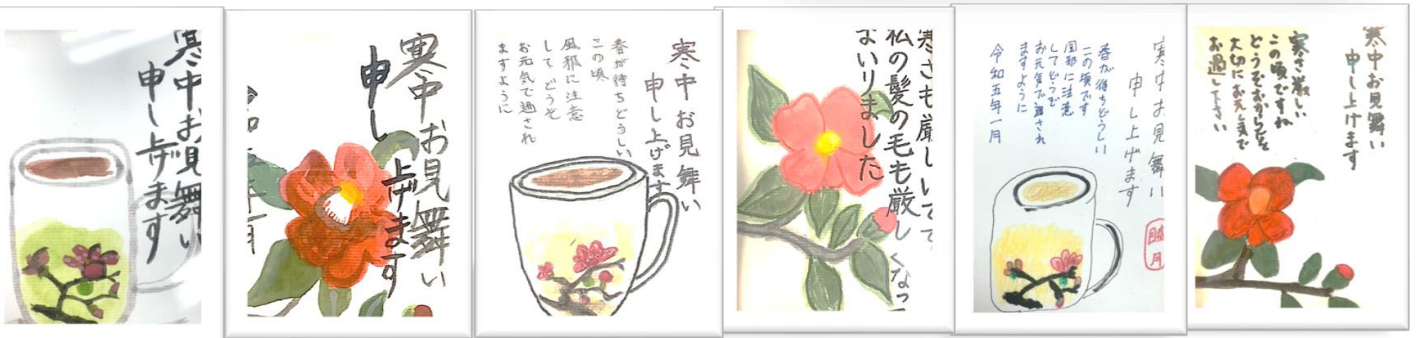 寒中お見舞い
申し上げます
寒中お見舞い
申し
上げます
寒中お見舞い
申し上げます
春が待ちどうしい
この頃
風邪に注意
して どうぞ
お元気で過され
ますように
寒さも厳し
私の髪の毛も厳しくなっ
まいりました
寒中お見舞い
申し上げます
春が待ちどうしい
この頃です
風邪に注意
してどうぞ
お元気で過され
ますように
令和五年一月
睦月
寒中お見舞い
申し上げます
寒さ厳しい
この頃ですね
どうぞおからだを
大切にお元気で
お過し下さい